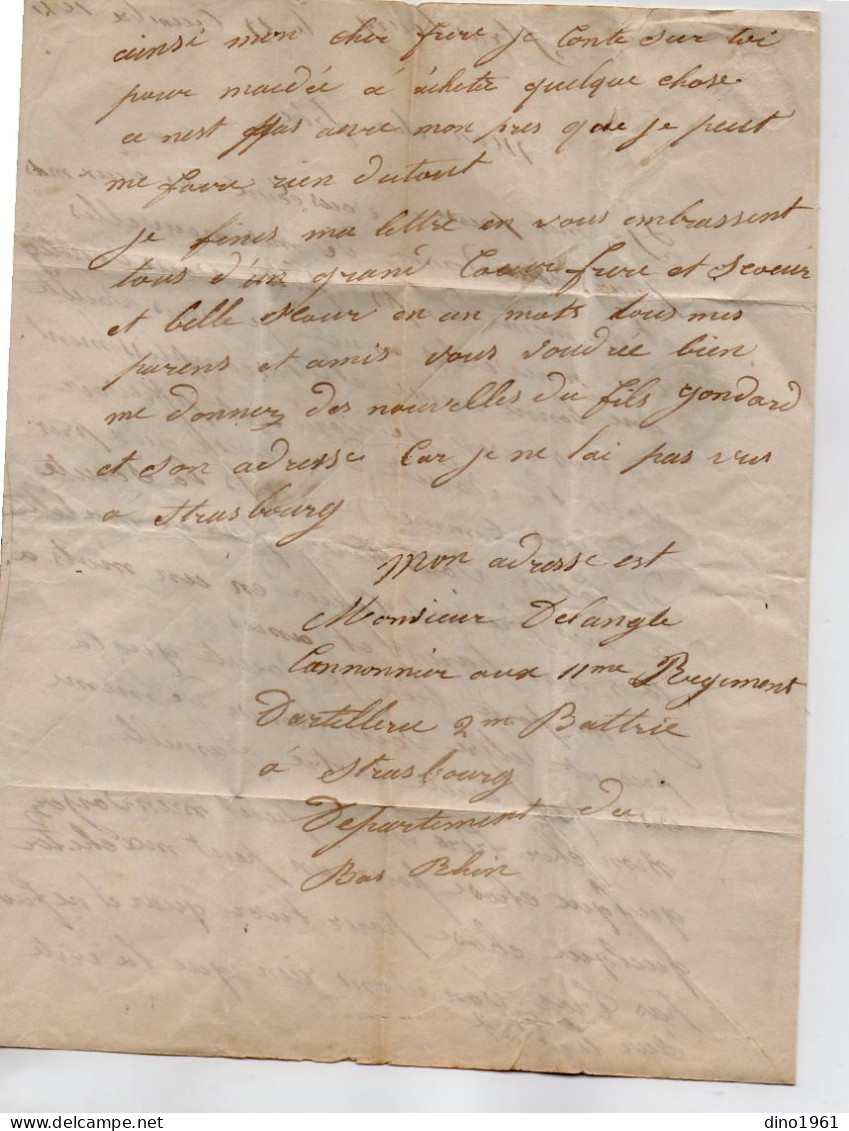 ainsi mon cher frere je Conte sur toi
pour maidée a achetér quelque chose
ce nest pas avec mon pres que je peut
me faire rien dutout
je finis ma lettre en vous embrassent
tous d'un grand Coeur frere et Soeur
et belle Soeur en un mots tous mes
parens et amis vous voudrée bien
me donnez des nouvelles du fils gondard
et son adresse Car je ne lai pas vus
à Strasbourg
Mon adresse est
Monsieur Delangle
Cannonnier aux 11me Regiment
Dartillerie 2m Battrie
à Strasbourg
Departement du
Bas Rhin
dino1961